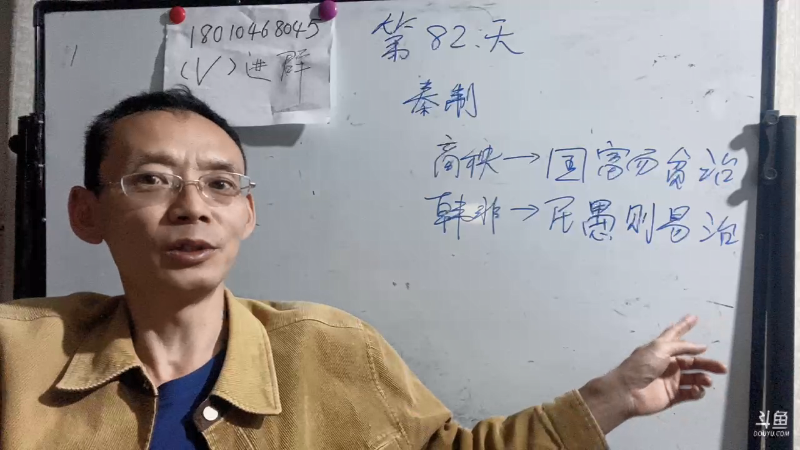 18010468045
(V)进群
第82.天
秦制
商秧→国富而贫治
韩非→民愚则易治
斗鱼
DOUYU.COM